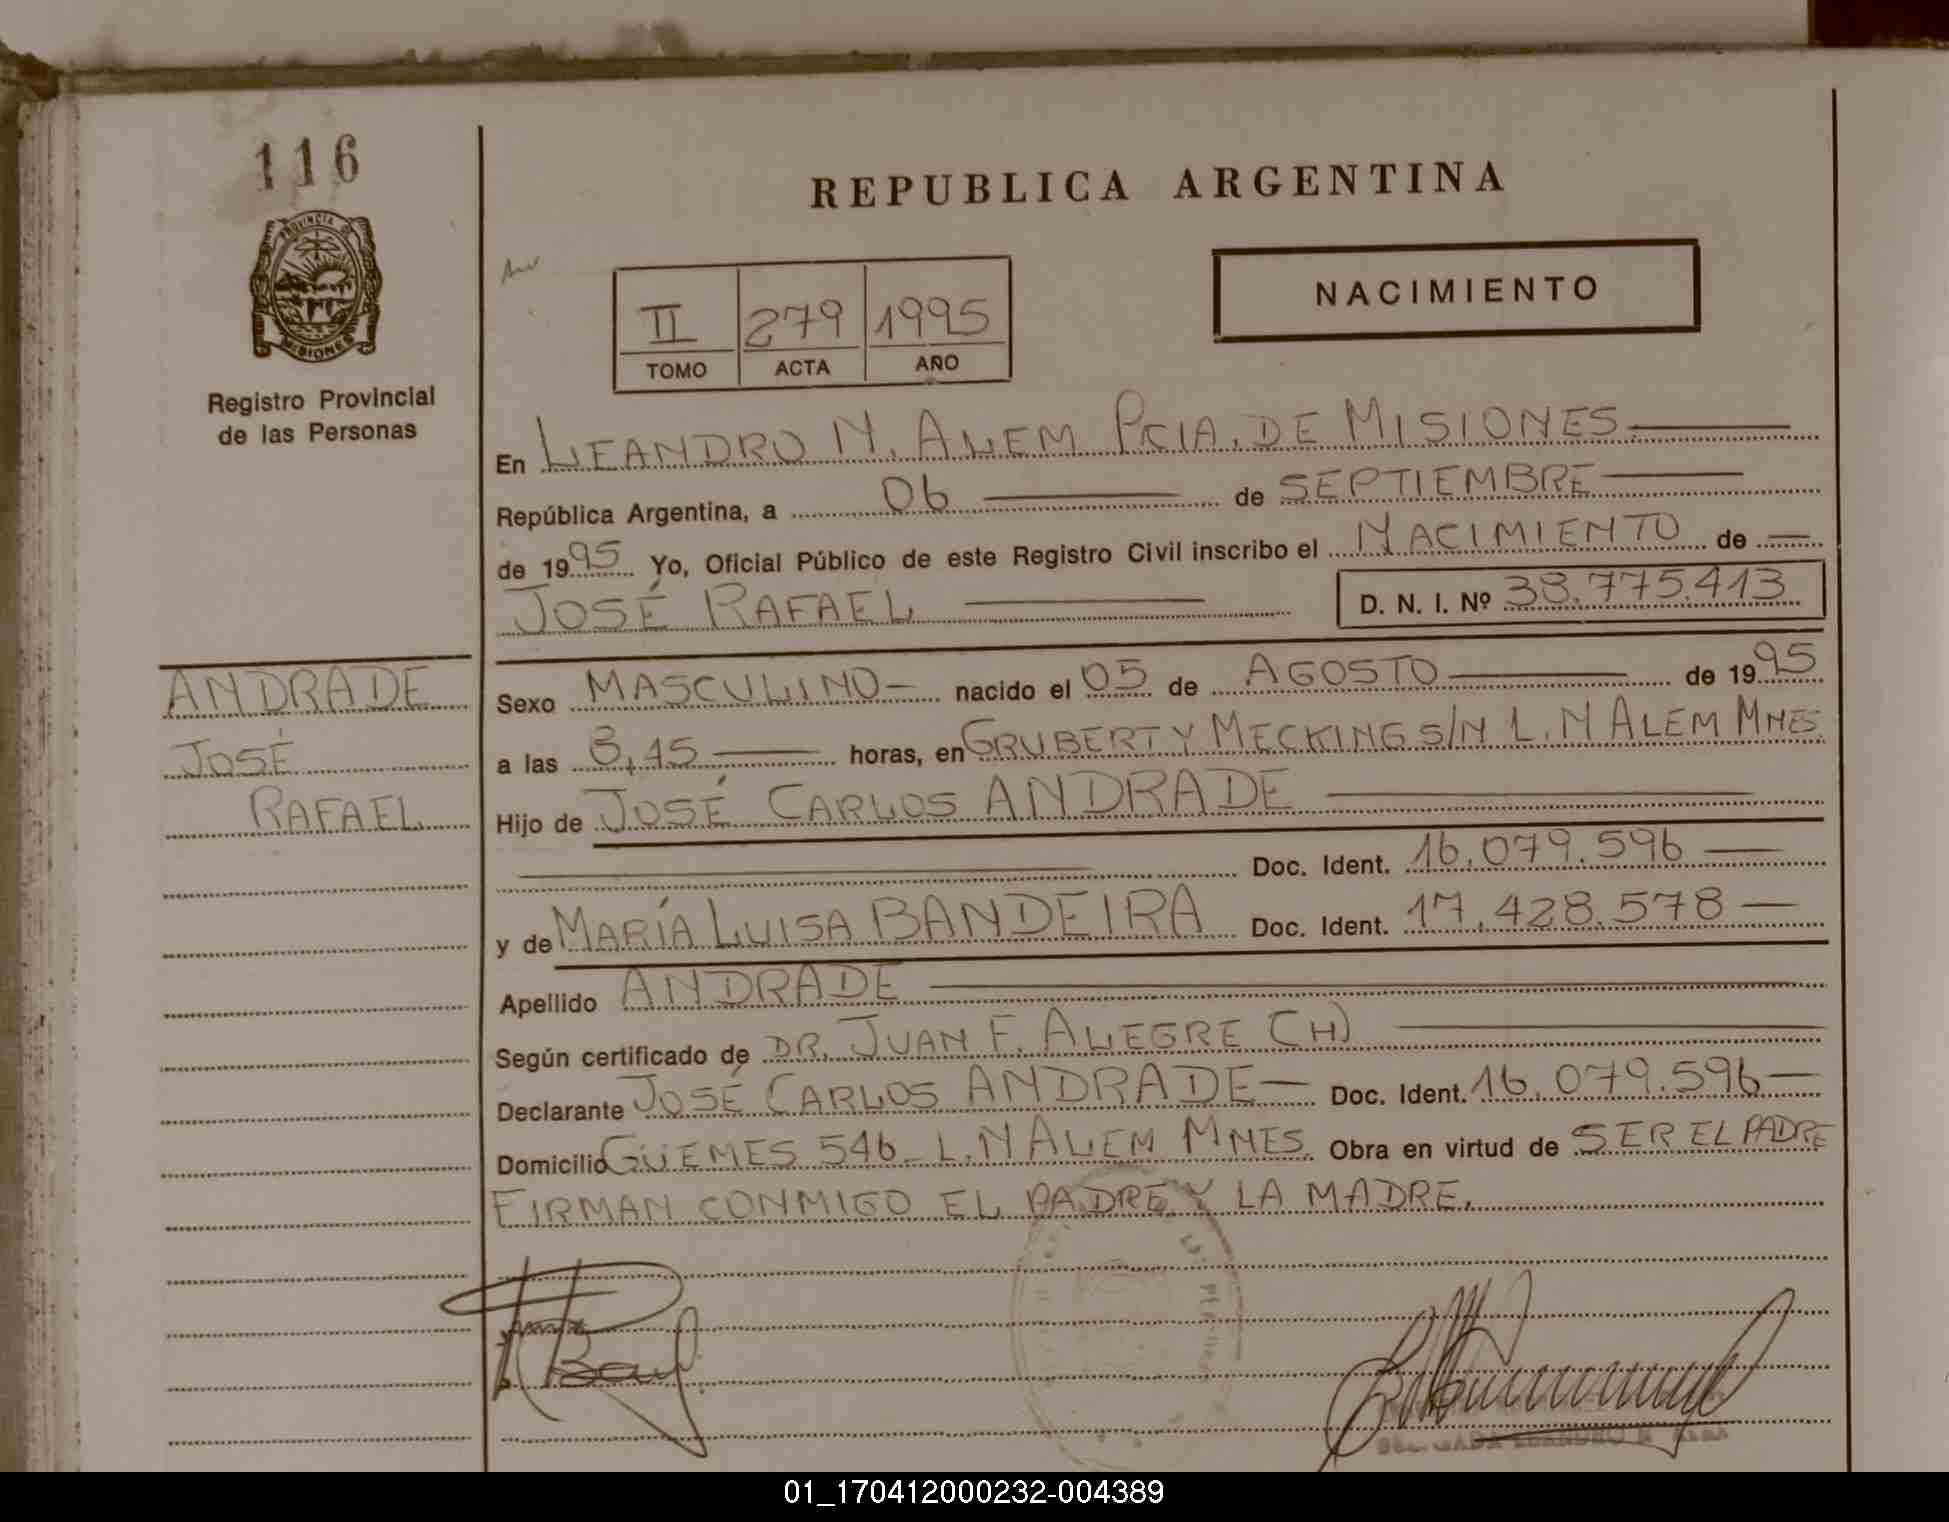 116
PROVINCIA DE
MISIONES
Registro Provincial
de las Personas
REPUBLICA ARGENTINA
NACIMIENTO
II 279 1995
TOMO ACTA AÑO
En LEANDRO N. ALEM PCIA. DE MISIONES.
República Argentina, a 06 de SEPTIEMBRE
de 1995 Yo, Oficial Público de este Registro Civil inscribo el NACIMIENTO de
JOSÉ RAFAEL D. N. I. Nº 38.775.413
ANDRADE
JOSÉ
RAFAEL
Sexo MASCULINO nacido el 05 de AGOSTO de 1995
a las 8,15 horas, en GRUBERT Y MECKING S/N L. N ALEM MNES
Hijo de JOSÉ CARLOS ANDRADE
Doc. Ident. 16.079.596
y de MARÍA LUISA BANDEIRA Doc. Ident. 17.428.578
Apellido ANDRADE
Según certificado de DR. JUAN F. ALEGRE (H)
Declarante JOSÉ CARLOS ANDRADE Doc. Ident. 16.079.596
Domicilio GÜEMES 546 - L. N ALEM MNES. Obra en virtud de SER EL PADRE
FIRMAN CONMIGO EL PADRE Y LA MADRE.
01_170412000232-004389